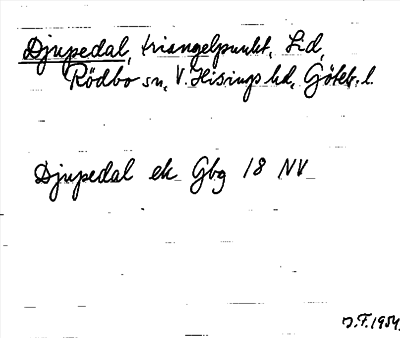 Djupedal, triangelpunkt,
Rödbo sn, V. Hisings hd, Göteb. l.
Djupedal ek Gbg 18 NV
J.F. 1954